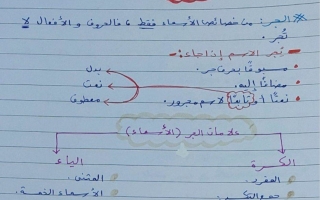 الجر: من خصائص الأسماء فقط ، فالحروف و الأفعال لا
تُجر.
- يُجر الاسم إذا جاء:
- مسبوقًا بحرف جر.
- مضافًا إليه.
- نعتًا أو تابعًا لاسم مجرور.
بدل
نعت
معطوف
علامات الجر (الأسماء)
الكسرة
الياء
المفرد
المثنى
جمع التكسير
الأسماء الخمسة